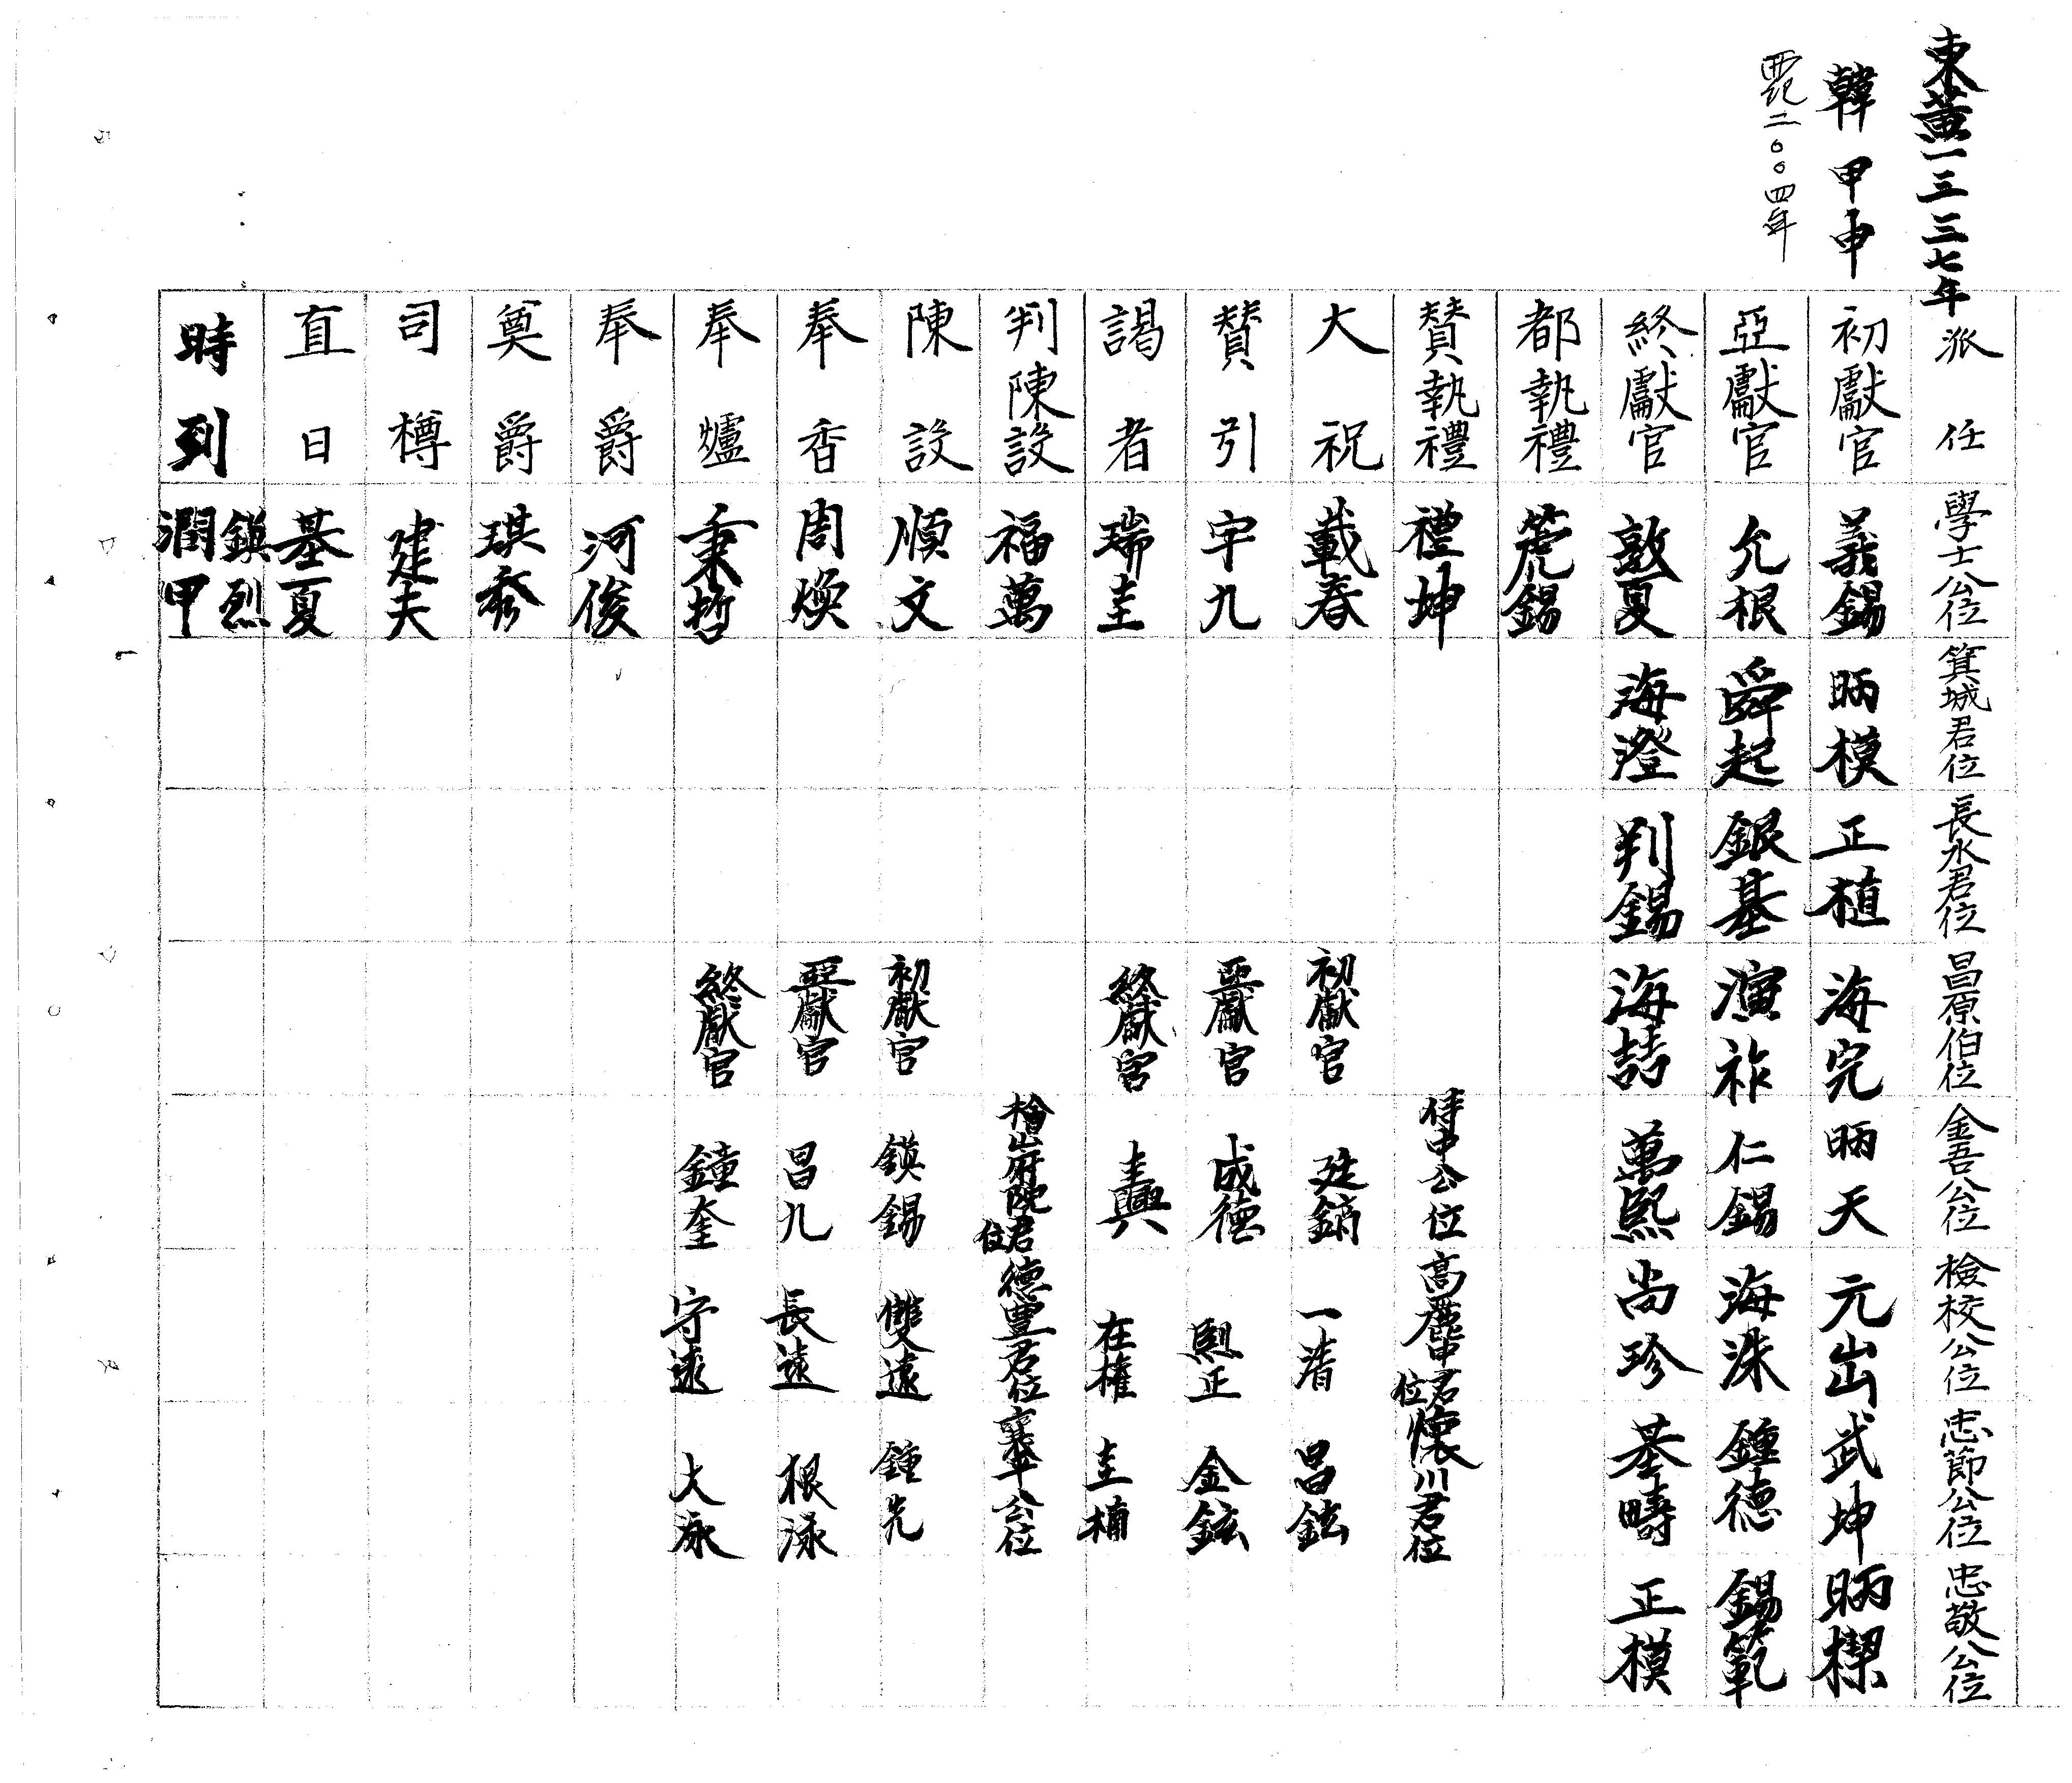 東黃一三三七年
韓甲申
西紀二〇〇四年
派任 學士公位 箕城君位 長水君位 昌原伯位 金吾公位 檢校公位 忠節公位 忠敬公位
初獻官 義錫 昞模 正植 海完 昞天 元出 武坤 昞楔
亞獻官 允根 舜起 銀基 演祚 仁錫 海洙 鍾德 錫範
終獻官 敦夏 海澄 判錫 海喆 萬熙 尚珍 基疇 正模
都執禮 箎錫
贊執禮 禮坤 侍中公位 高塵申君位 懷川君位
大祝 載春 初獻官 廷鎬 一清 昌鉉
贊引 宇九 亞獻官 成德 熙正 金鉉
謁者 瑞圭 終獻官 圭興 在權 圭楠
判陳設 福萬 檜山府院君位 德豊君位 襄平公位
陳設 順文 初獻官 鎮錫 雙遠 鍾先
奉香 周煥 亞獻官 昌九 長遠 根泳
奉爐 秉哲 終獻官 鐘奎 守遠 大泳
奉爵 河俊
奠爵 琪秀
司樽 建夫
直日 基夏
時列 鎮烈 潤甲